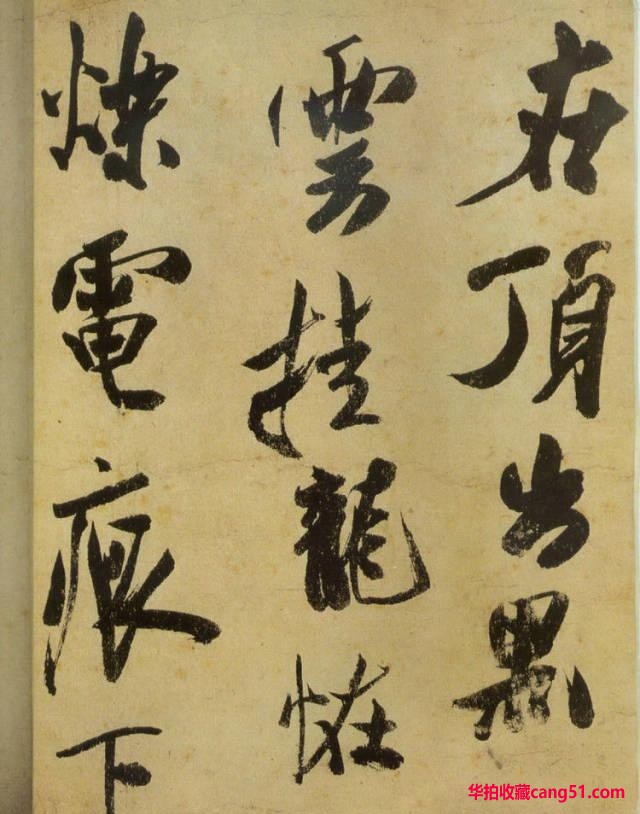 在頂出黑
雲挂龍怪
爍電痕下
华拍收藏cang51.com